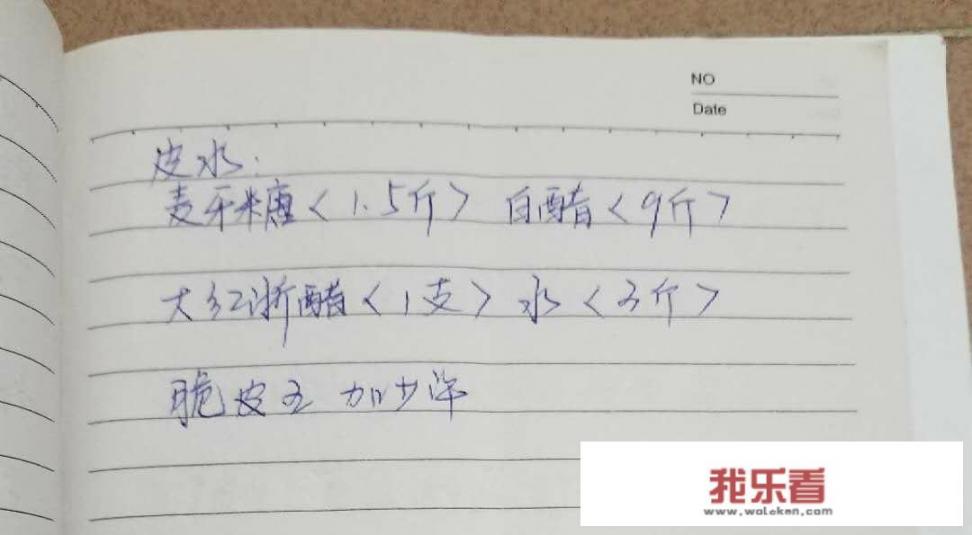 NO
Date
皮水：
麦牙糖＜1.5斤＞ 白醋＜9斤＞
大红浙醋＜1支＞ 水＜3斤＞
脆皮王 加少许
我乐看
www.woleken.com